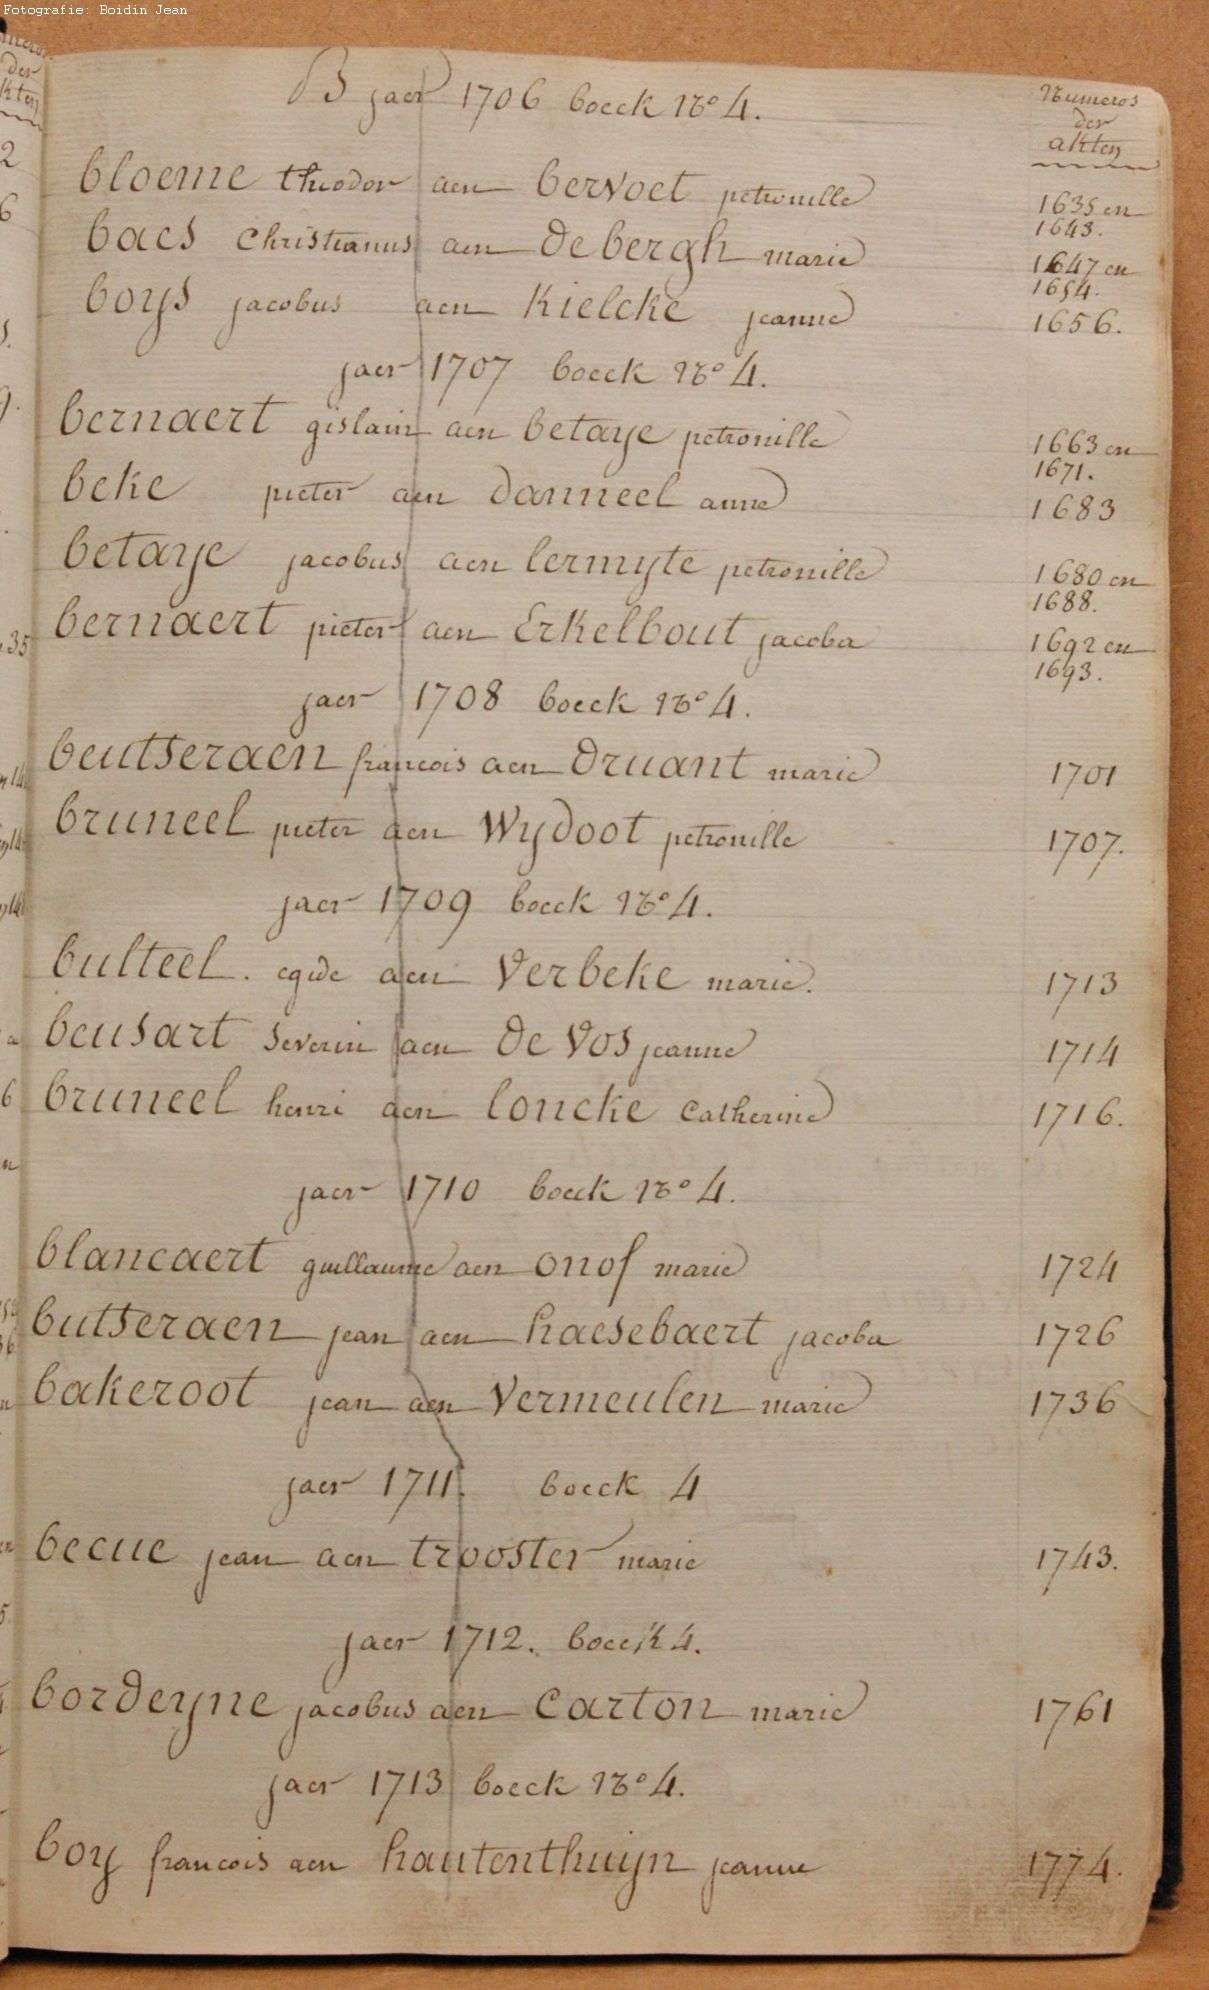 Fotografie: Boidin Jean
B jaer 1706 boeck No 4.
Numeros
der
akten
bloeme theodor aen bervoet petronille 1635 en
1643.
baes Christianus aen de bergh marie 1647 en
1654.
boys jacobus aen Kielcke jeanne 1656.
jaer 1707 boeck No 4.
bernaert gislain aen betaye petronille 1663 en
1671.
beke pieter aen danneel anne 1683
betaye jacobus aen lermyte petronille 1680 en
1688.
bernaert pieter aen Erkelbout jacoba 1692 en
1693.
jaer 1708 boeck No 4.
beutseraen francois aen druant marie 1701
bruneel pieter aen Wydoot petronille 1707.
jaer 1709 boeck No 4.
bulteel. egide aen Verbeke marie. 1713
beusart Severin aen de Vos jeanne 1714
bruneel henri aen loncke Catherine 1716.
jaer 1710 boeck No 4.
blancaert guillaume aen onof marie 1724
butseraen jean aen haesebaert jacoba 1726
bakeroot jean aen Vermeulen marie 1736
jaer 1711. boeck 4
becue jean aen trooster marie 1743.
jaer 1712. boeck 4.
bordeyne jacobus aen Carton marie 1761
jaer 1713 boeck No 4.
boy francois aen hautenthuyn jeanne 1774.